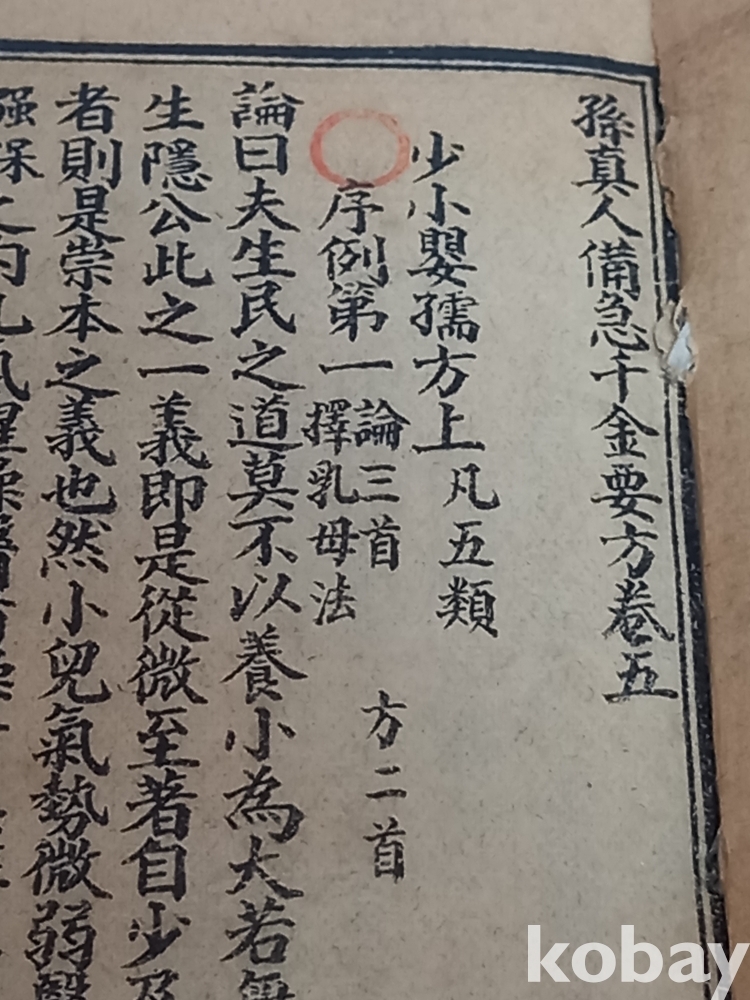 孫真人備急千金要方卷五
少小嬰孺方上 凡五類
序例第一 論三首 方二首
擇乳母法
論曰夫生民之道莫不以養小為大若無
生隱公此之一義即是從微至著自少及
者則是崇本之義也然小兒氣勢微弱醫
kobay